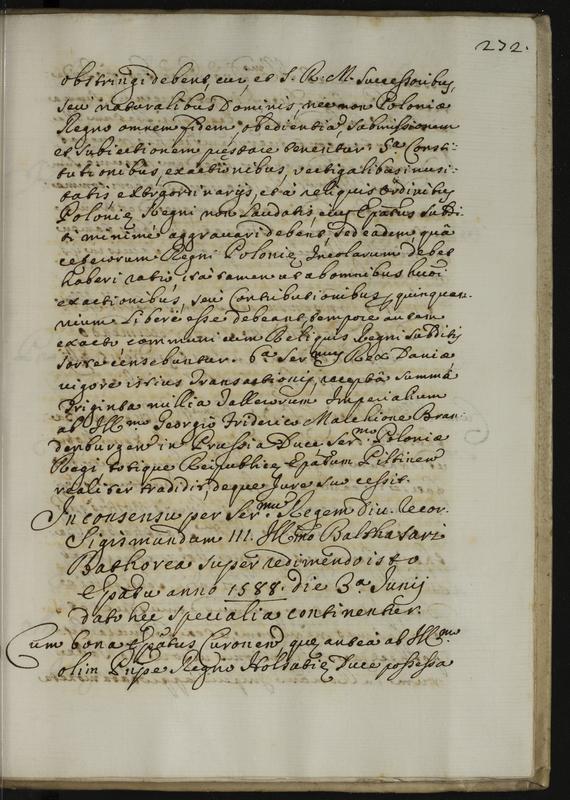 272.
obstringi debent, cui et S. R. M. Successoribus,
seu naturalibus Dominis, nec non Poloniæ
Regno omnem fidem obedientiā, submissionem
et subiectionem præstare tenentur. 5ta Consti-
tutionibus, exactionibus, vectigalibus inusi-
tatis extraordinarijs, et à reliquis Ordinibus
Poloniæ Regni non laudatis, eius Epātus Subdi-
ti minimè aggravari debent, sed eadem, quā
ceterorum Regni Poloniæ Incolarum debet
haberi ratio, ita tamen ut ab omnibus huiōi
exactionibus, seu Contributionibus, quinquen-
nium liberè esse debeant, tempore autem
exacto communi cum Reliquis Regni Subditis
sorte censebuntur. 6ta Sermus Rex Daniæ
vigore istius Transactionis, receptâ summâ
Triginta millia Talleorum Imperialium
ab Illmo Georgio Friderico Marchione Bran-
denburgen in Prussia Duce Sermo Poloniæ
Regi totique Reipublicæ Epātum Piltinen
realiter tradidit, deque Jure suo cessit.
In consensu per Sermum Regem Div. Recor.
Sigismundum III. Illmo Balthasari
Bathorea super redimendo isto
Epātu anno 1588. die 3a Junij
dato hæc specialia continentur.
Cum bona Epātus Curonen, quæ antea ab Illmo
olim Prīpe Magno Holsatiæ Duce possessa